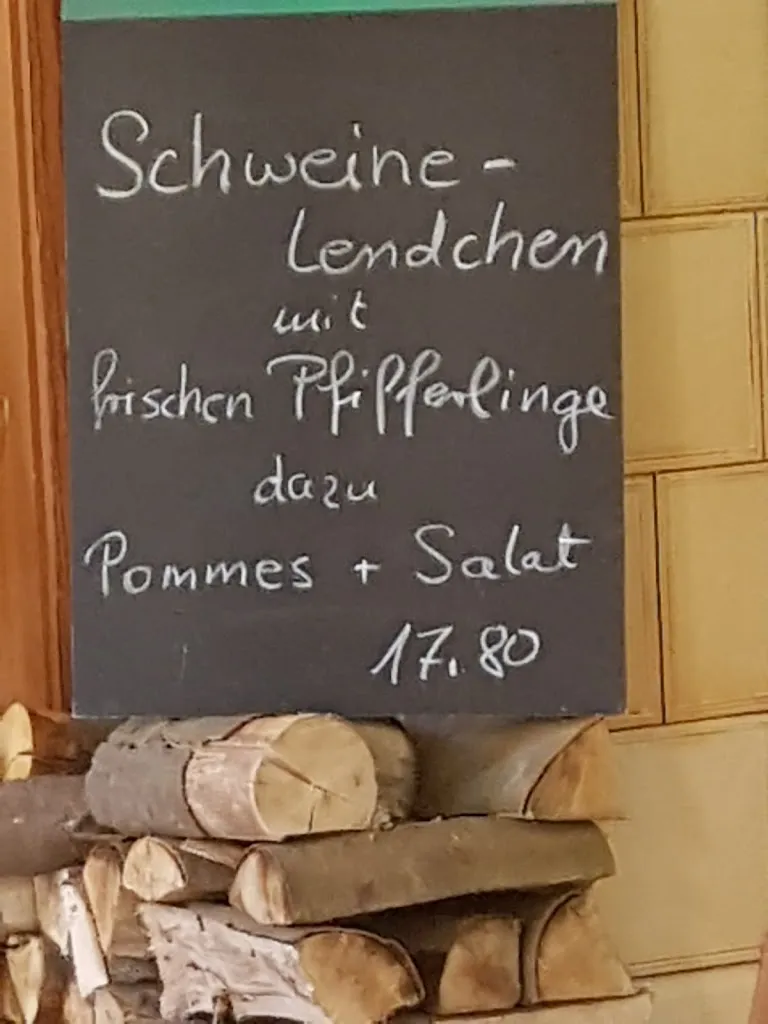 Schweine-
Lendchen
mit
frischen Pfifferlinge
dazu
Pommes + Salat
17.80